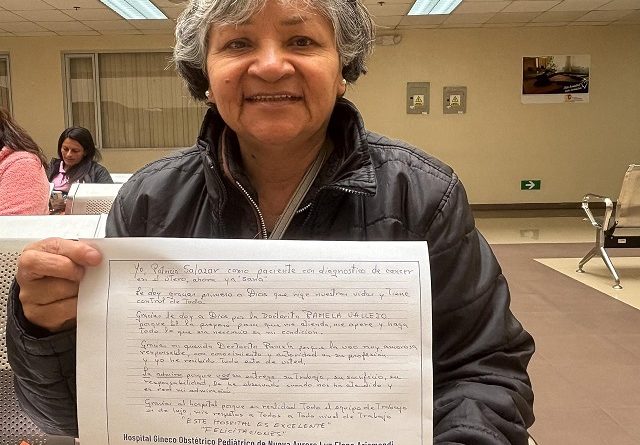 Yo, Patricia Salazar como paciente con diagnostico de cancer
en el utero, ahora ya "sana"
Le doy gracias primero a Dios que rige nuestras vidas y tiene
control de todo.
Gracias le doy a Dios por la Doctorita PAMELA VALLEJO
porque El la preparo para que me atienda, me opere y haga
todo lo que era necesario en mi condicion.
Gracias mi querida Doctorita Pamela porque la veo muy amorosa
responsable, con conocimiento y autoridad en su profesion
y yo he recibido todo esto de usted.
La admiro porque veo su entrega, su trabajo, su sacrificio, su
responsabilidad, he observado cuando nos ha atendido y
es real mi admiracion.
Gracias al hospital porque en realidad todo el equipo de trabajo
es de lujo, mis respetos a todos a todo nivel de trabajo
"ESTE HOSPITAL ES EXCELENTE"
FELICITACIONES
Hospital Gineco Obstétrico Pediátrico de Nueva Aurora Luz Elena Arismendi